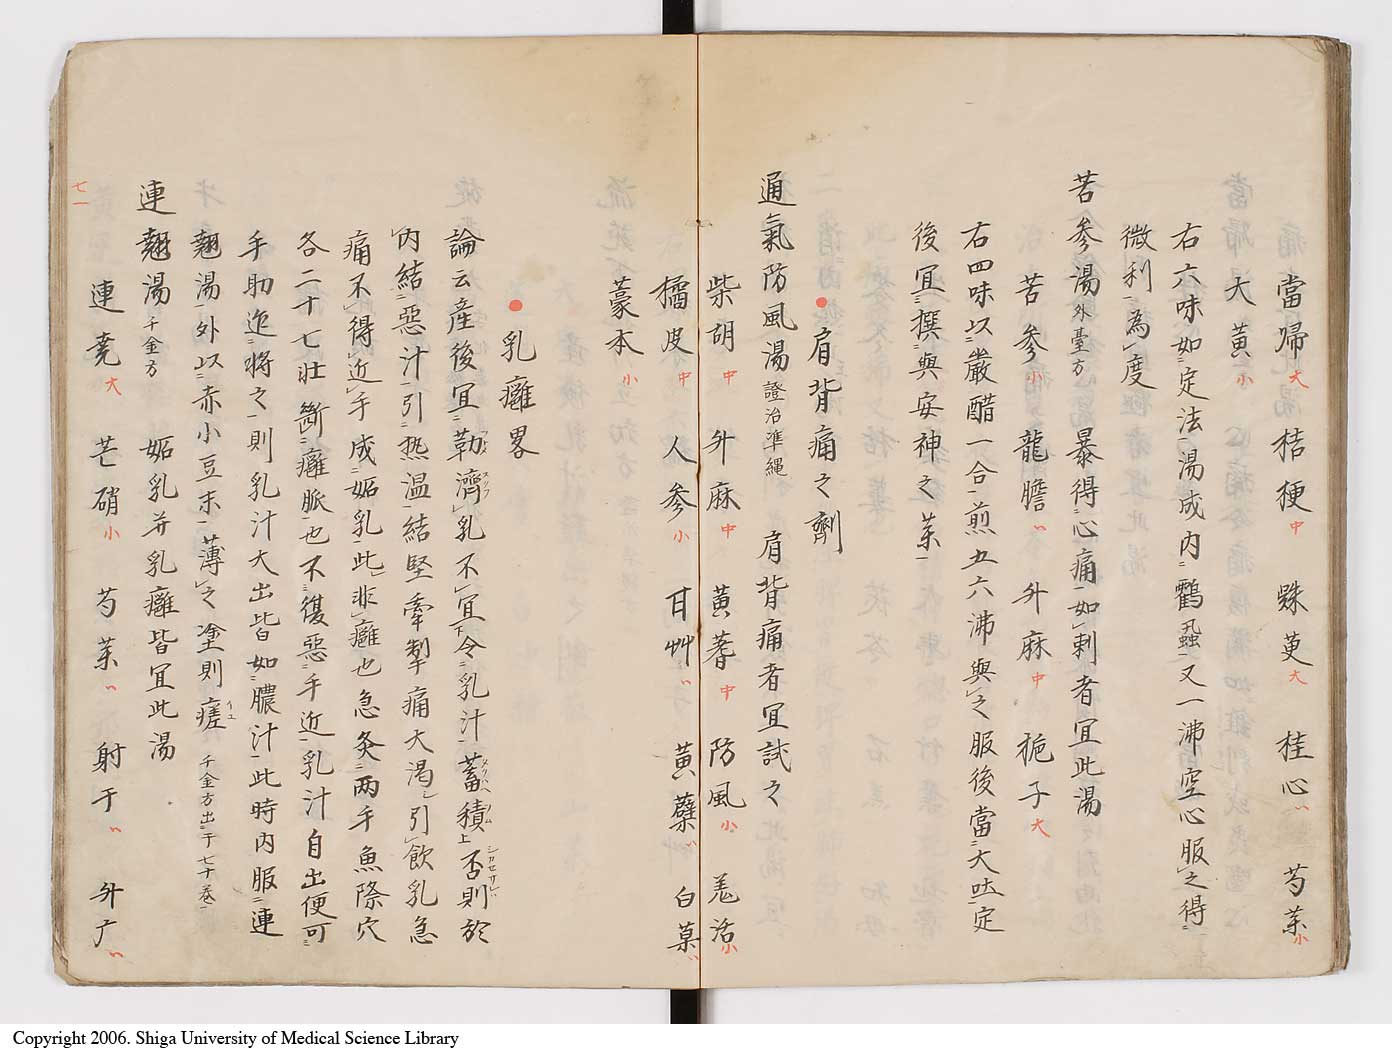 當歸大 桔梗中 蚍茰大 桂心〻 芍薬小
右六味如定法湯成内鸖虱蟲又一沸空心服之得
微利為度
苦参湯外臺方 暴得心痛如刺者宜此湯
苦参小 龍膽〻 升麻中 梔子大
右四味以嚴醋一合煎五六沸與之服後當大吐定
後宜撰與安神之薬
肩背痛之劑
通氣防風湯證治準繩 肩背痛者宜試之
柴胡中 升麻中 黄蓍中 防風小 羗活小
橘皮中 人参小 甘艸〻 黄蘗〻 白菓〻
藁本小
乳癰畧
論云産後宜勒濟乳不宜令乳汁蓄積上否則於
内結惡汁引热温結堅牽掣痛大渇引飲乳急
痛不得近手成妬乳此非癰也急灸两手魚際穴
各二十七壮断癰脈也不復惡手近乳汁自出便可
手助迮将之則乳汁大出皆如膿汁此時内服連
翹湯外以赤小豆末薄之塗則瘥千金方出于七十巻
連翹湯千金方 妬乳并乳癰皆宜此湯
連堯大 芒硝小 芍薬〻 射干〻 升广〻
七一
Copyright 2006. Shiga University of Medical Science Library